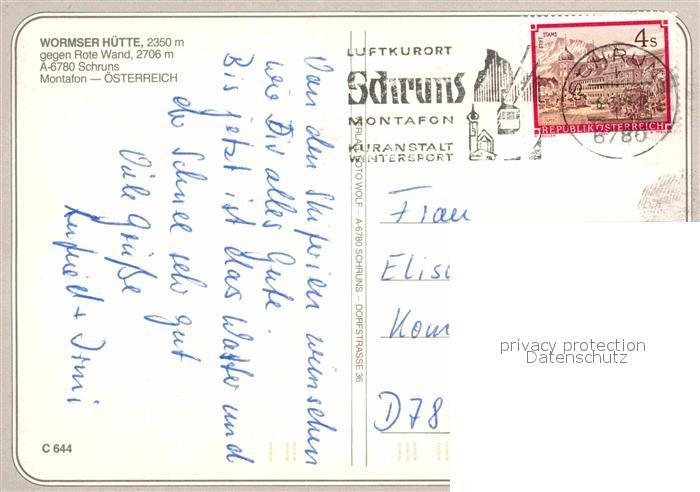 WORMSER HÜTTE, 2350 m
gegen Rote Wand, 2706 m
A-6780 Schruns
Montafon — ÖSTERREICH
Von den Skiferien wünschen
wir Dir alles Gute
Bis jetzt ist das Wetter und
der Schnee sehr gut
Viele Grüße
+ Irmi
C 644
VERLAG FOTO WOLF – A-6780 SCHRUNS – DORFSTRASSE 36
LUFTKURORT
Schruns
MONTAFON
KURANSTALT
WINTERSPORT
STIFT STAMS
4 S
REPUBLIK ÖSTERREICH
SCHRUNS
6780
Frau
Elis
Kon
D78
privacy protection
Datenschutz